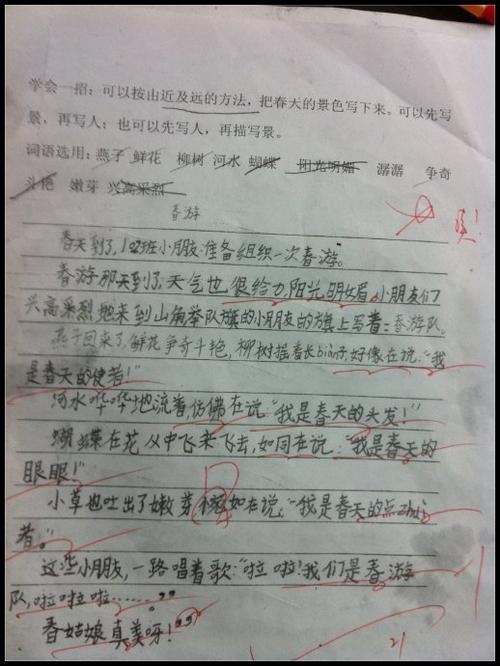 学会一招：可以按由近及远的方法，把春天的景色写下来。可以先写
景，再写人；也可以先写人，再描写景。
词语选用：燕子 鲜花 柳树 河水 蝴蝶 阳光明媚 潺潺 争奇
斗艳 嫩芽 兴高采烈
春游
春天到了，102班小朋友准备组织一次春游。
春游那天到了，天气也很给力，阳光明媚。小朋友们
兴高采烈地来到山角举队旗的小朋友的方旗上写着：春游队。
燕子回来了，鲜花争奇斗艳，柳树摇着长bian子，好像在说：“我
是春天的使者！”
河水哗哗地流着，仿佛在说：“我是春天的头发！”
蝴蝶在花从中飞来飞去，如同在说：“我是春天的
眼眼！”
小草也吐出了嫩芽，如在说：“我是春天的点zhui
者。”
这些小朋友，一路唱着歌：“啦啦！我们是春游
队，啦啦啦啦……”
春姑娘真美呀！”
21